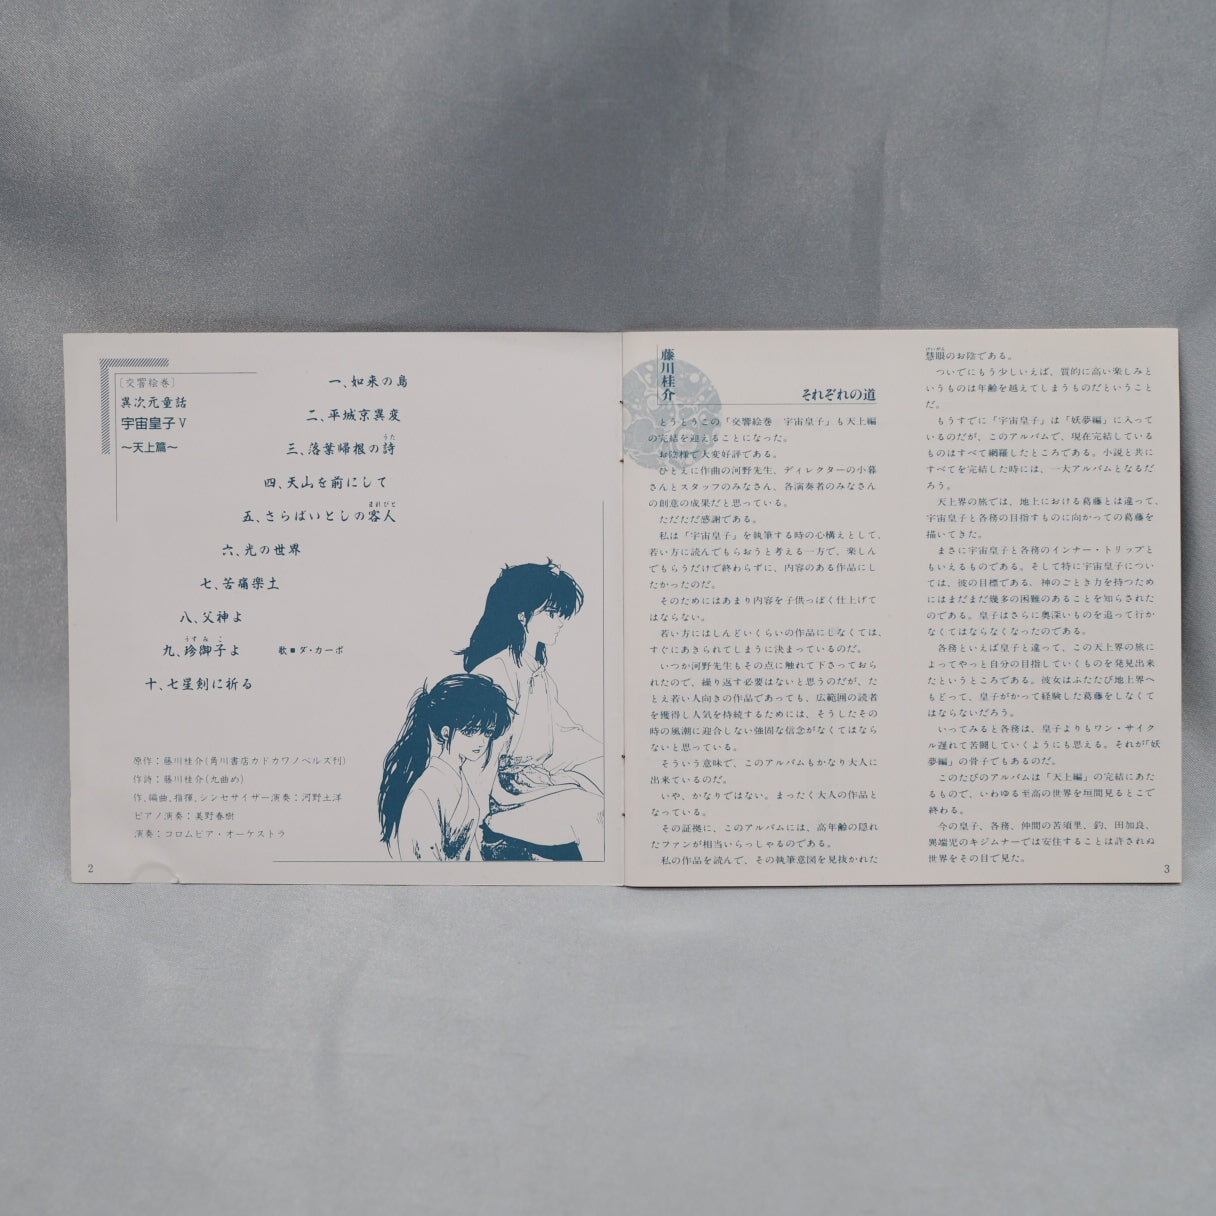 〔交響絵巻〕
異次元童話
宇宙皇子Ⅴ
～天上篇～
一、如来の島
二、平城京異変
三、落葉帰根の詩
うた
四、天山を前にして
五、さらばいとしの客人
まれびと
六、光の世界
七、苦痛楽土
八、父神よ
九、珍御子よ
うずみこ
歌■ダ・カーポ
十、七星剣に祈る
原作：藤川桂介(角川書店カドカワノベルズ刊)
作詩：藤川桂介(九曲め)
作、編曲、指揮、シンセサイザー演奏：河野土洋
ピアノ演奏：美野春樹
演奏：コロムビア・オーケストラ
2
藤川桂介
それぞれの道
とうとうこの「交響絵巻　宇宙皇子」も天上編
の完結を迎えることになった。
お陰様で大変好評である。
ひとえに作曲の河野先生、ディレクターの小暮
さんとスタッフのみなさん、各演奏者のみなさん
の創意の成果だと思っている。
ただただ感謝である。
私は「宇宙皇子」を執筆する時の心構えとして、
若い方に読んでもらおうと考える一方で、楽しん
でもらうだけで終わらずに、内容のある作品にし
たかったのだ。
そのためにはあまり内容を子供っぽく仕上げて
はならない。
若い方にはしんどいくらいの作品にしなくては、
すぐにあきられてしまうに決まっているのだ。
いつか河野先生もその点に触れて下さっておら
れたので、繰り返す必要はないと思うのだが、た
とえ若い人向きの作品であっても、広範囲の読者
を獲得し人気を持続するためには、そうしたその
時の風潮に迎合しない強固な信念がなくてはなら
ないと思っている。
そういう意味で、このアルバムもかなり大人に
出来ているのだ。
いや、かなりではない。まったく大人の作品と
なっている。
その証拠に、このアルバムには、高年齢の隠れ
たファンが相当いらっしゃるのである。
私の作品を読んで、その執筆意図を見抜かれた
けいがん
慧眼のお陰である。
ついでにもう少しいえば、質的に高い楽しみと
いうものは年齢を越えてしまうものだということ
だ。
もうすでに「宇宙皇子」は「妖夢編」に入って
いるのだが、このアルバムで、現在完結している
ものはすべて網羅したところである。小説と共に
すべてを完結した時には、一大アルバムとなるだ
ろう。
天上界の旅では、地上における葛藤とは違って、
宇宙皇子と各務の目指すものに向かっての葛藤を
描いてきた。
まさに宇宙皇子と各務のインナー・トリップと
もいえるものである。そして特に宇宙皇子につい
ては、彼の目標である、神のごとき力を持つため
にはまだまだ幾多の困難のあることを知らされた
のである。皇子はさらに奥深いものを追って行か
なくてはならなくなったのである。
各務といえば皇子と違って、この天上界の旅に
よってやっと自分の目指していくものを発見出来
たというところである。彼女はふたたび地上界へ
もどって、皇子がかって経験した葛藤をしなくて
はならないだろう。
いってみると各務は、皇子よりもワン・サイク
ル遅れて苦闘していくようにも思える。それが「妖
夢編」の骨子でもあるのだ。
このたびのアルバムは「天上編」の完結にあた
るもので、いわゆる至高の世界を垣間見るとこで
終わる。
今の皇子、各務、仲間の苦須里、釣、田加良、
異端児のキジムナーでは安住することは許されぬ
世界をその目で見た。
3